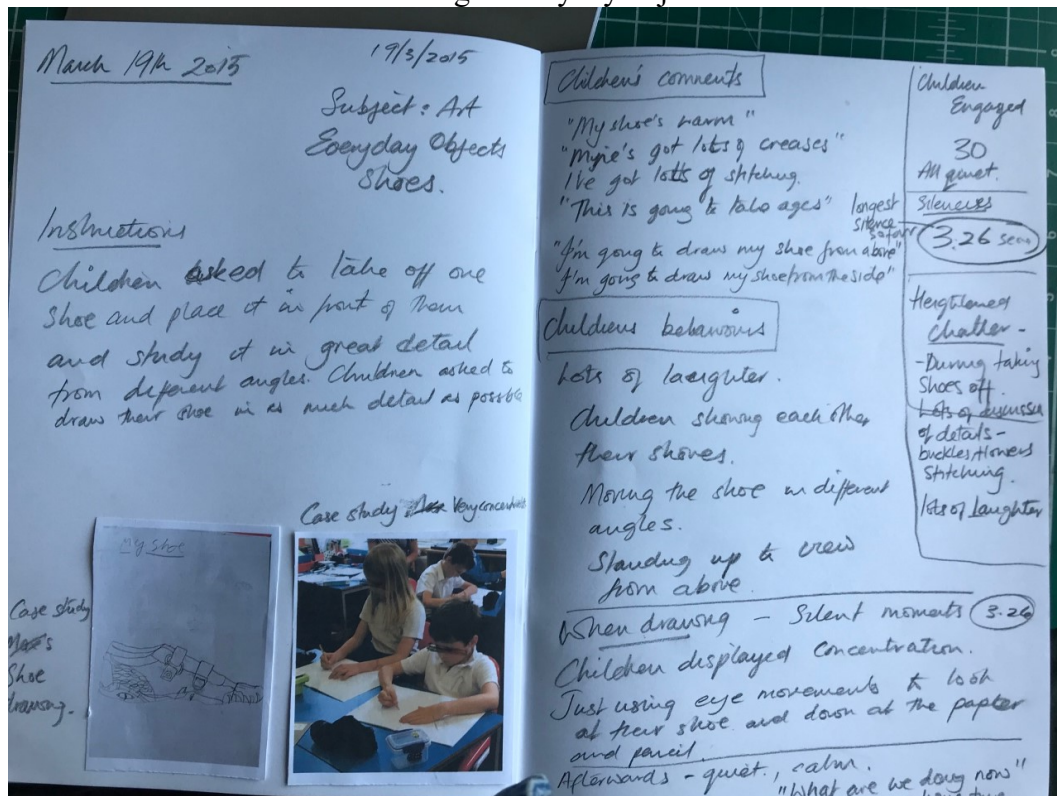 March 19th 2015
19/3/2015
Subject: Art
Everyday Objects
Shoes.
Instructions
Children asked to take off one
shoe and place it in front of them
and study it in great detail
from different angles. Children asked to
draw their shoe in as much detail as possible
Case study Very
My shoe
Case study
's
Shoe
drawing.
Children's comments
"My shoe's warm"
"Myne's got lots of creases"
I've got lots of stitching.
"This is going to take ages"
"I'm going to draw my shoe from above"
I'm going to draw my shoe from the side"
longest
silence
so far
Childrens behaviours
Lots of laughter.
Children showing each other
their shoes.
Moving the shoe in different
angles.
Standing up to view
from above.
When drawing - Silent moments 3.26
Children displayed concentration.
Just using eye movements to look
at their shoe and down at the paper
and pencil.
Afterwards - quiet, calm.
"What are we doing now"
Children
Engaged
30
All quiet.
Silences
3.26 secs
Heightened
chatter -
- During taking
Shoes off.
Lots of discussion
of details -
buckles/flowers
Stitching.
lots of laughter